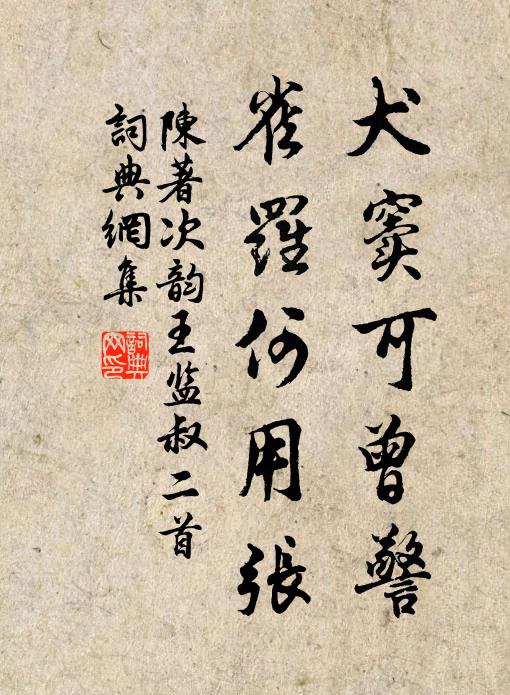 犬竇可曾警
雀羅何用張
陳著次韵王监叔二首
詞典網集
詞典網印